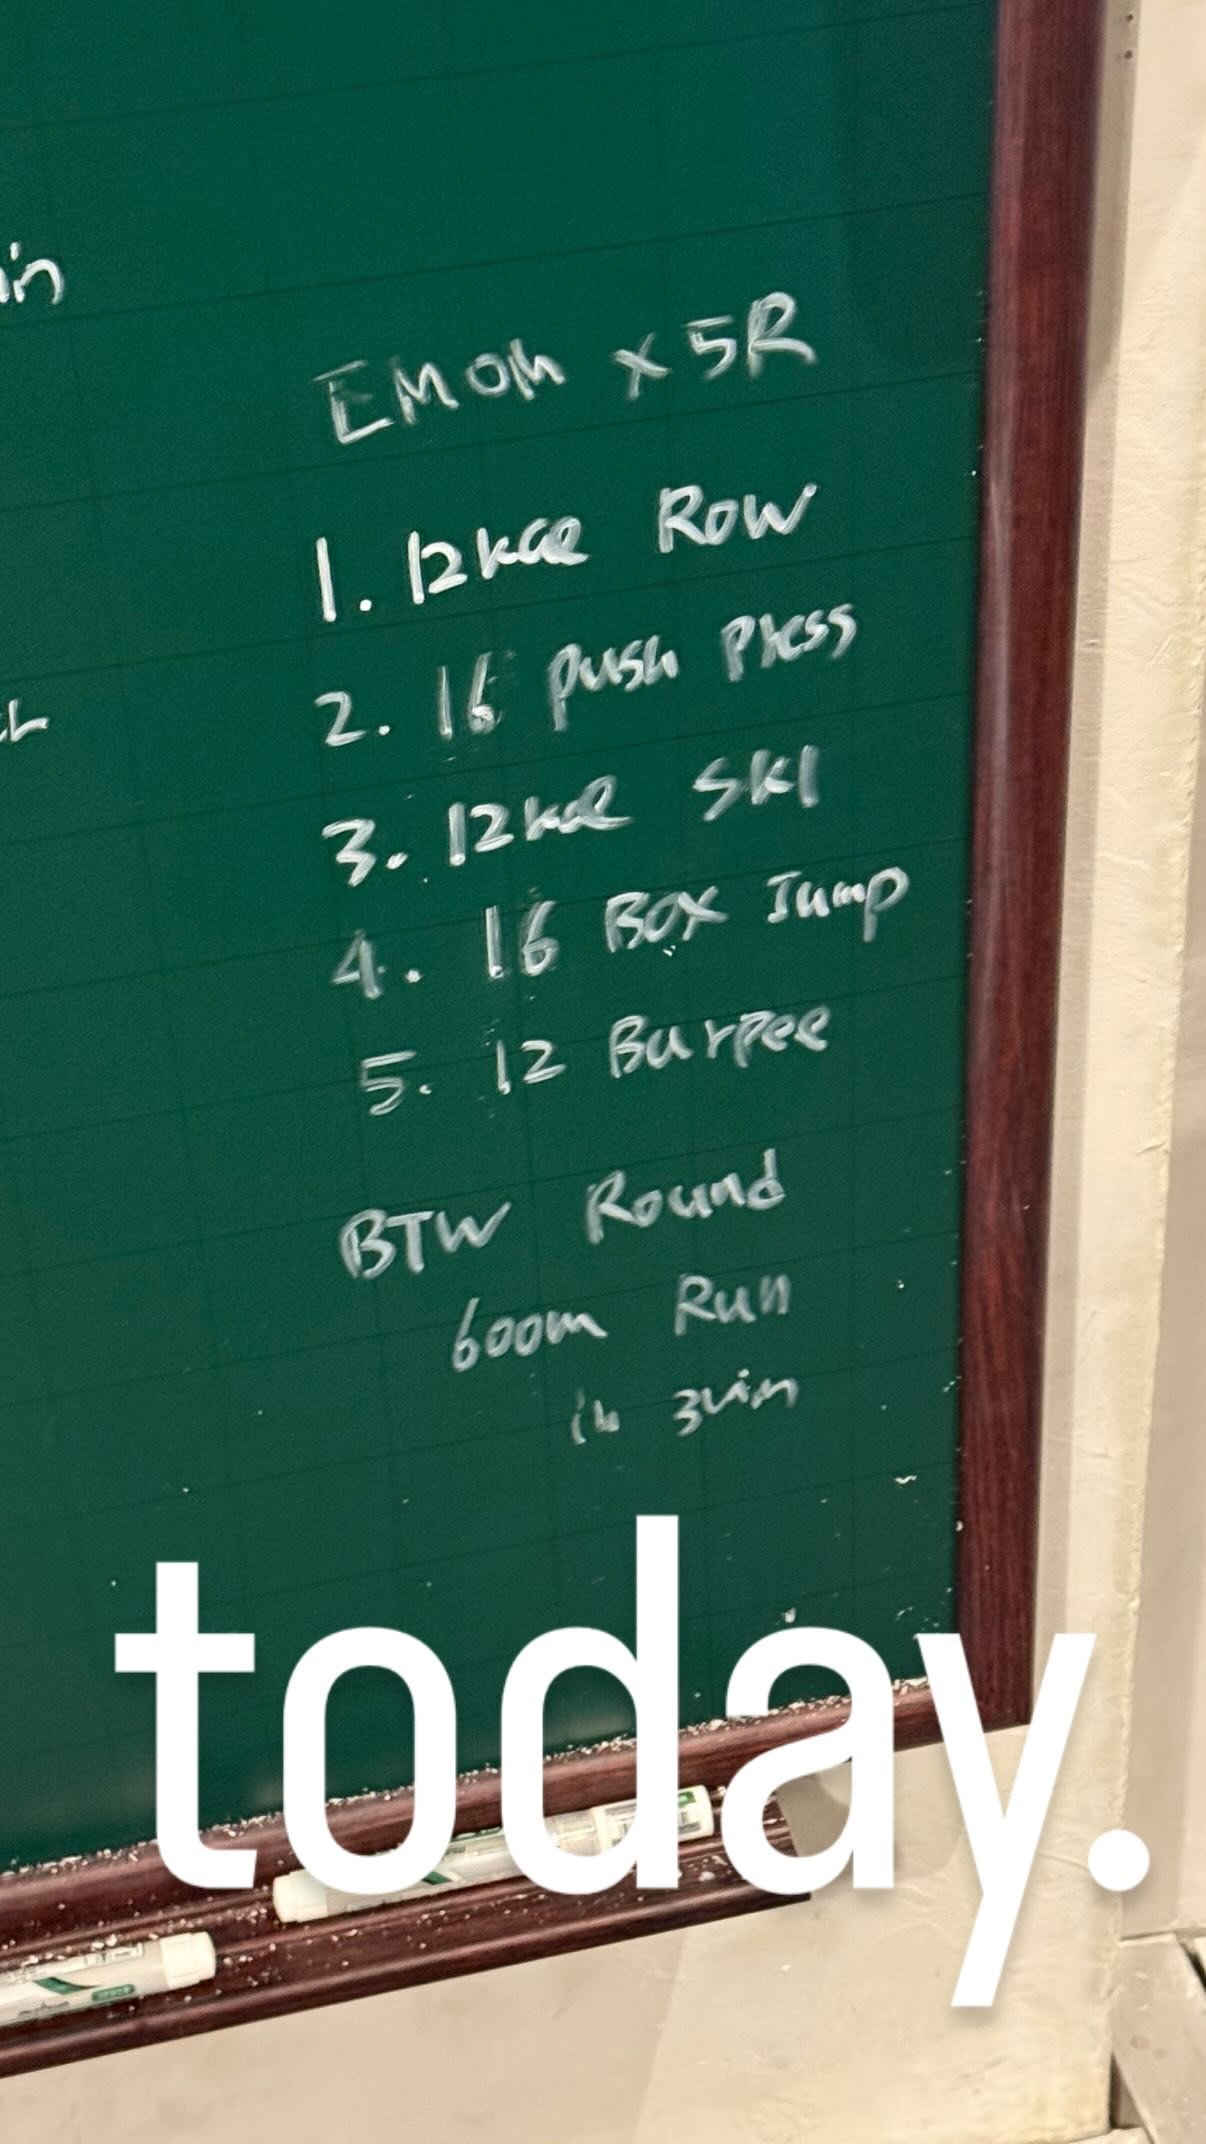 EMOM x 5R
1. 12kcal Row
2. 16 Push Press
3. 12kcal SKI
4. 16 Box Jump
5. 12 Burpee
BTW Round
600m Run
in 3min
today.